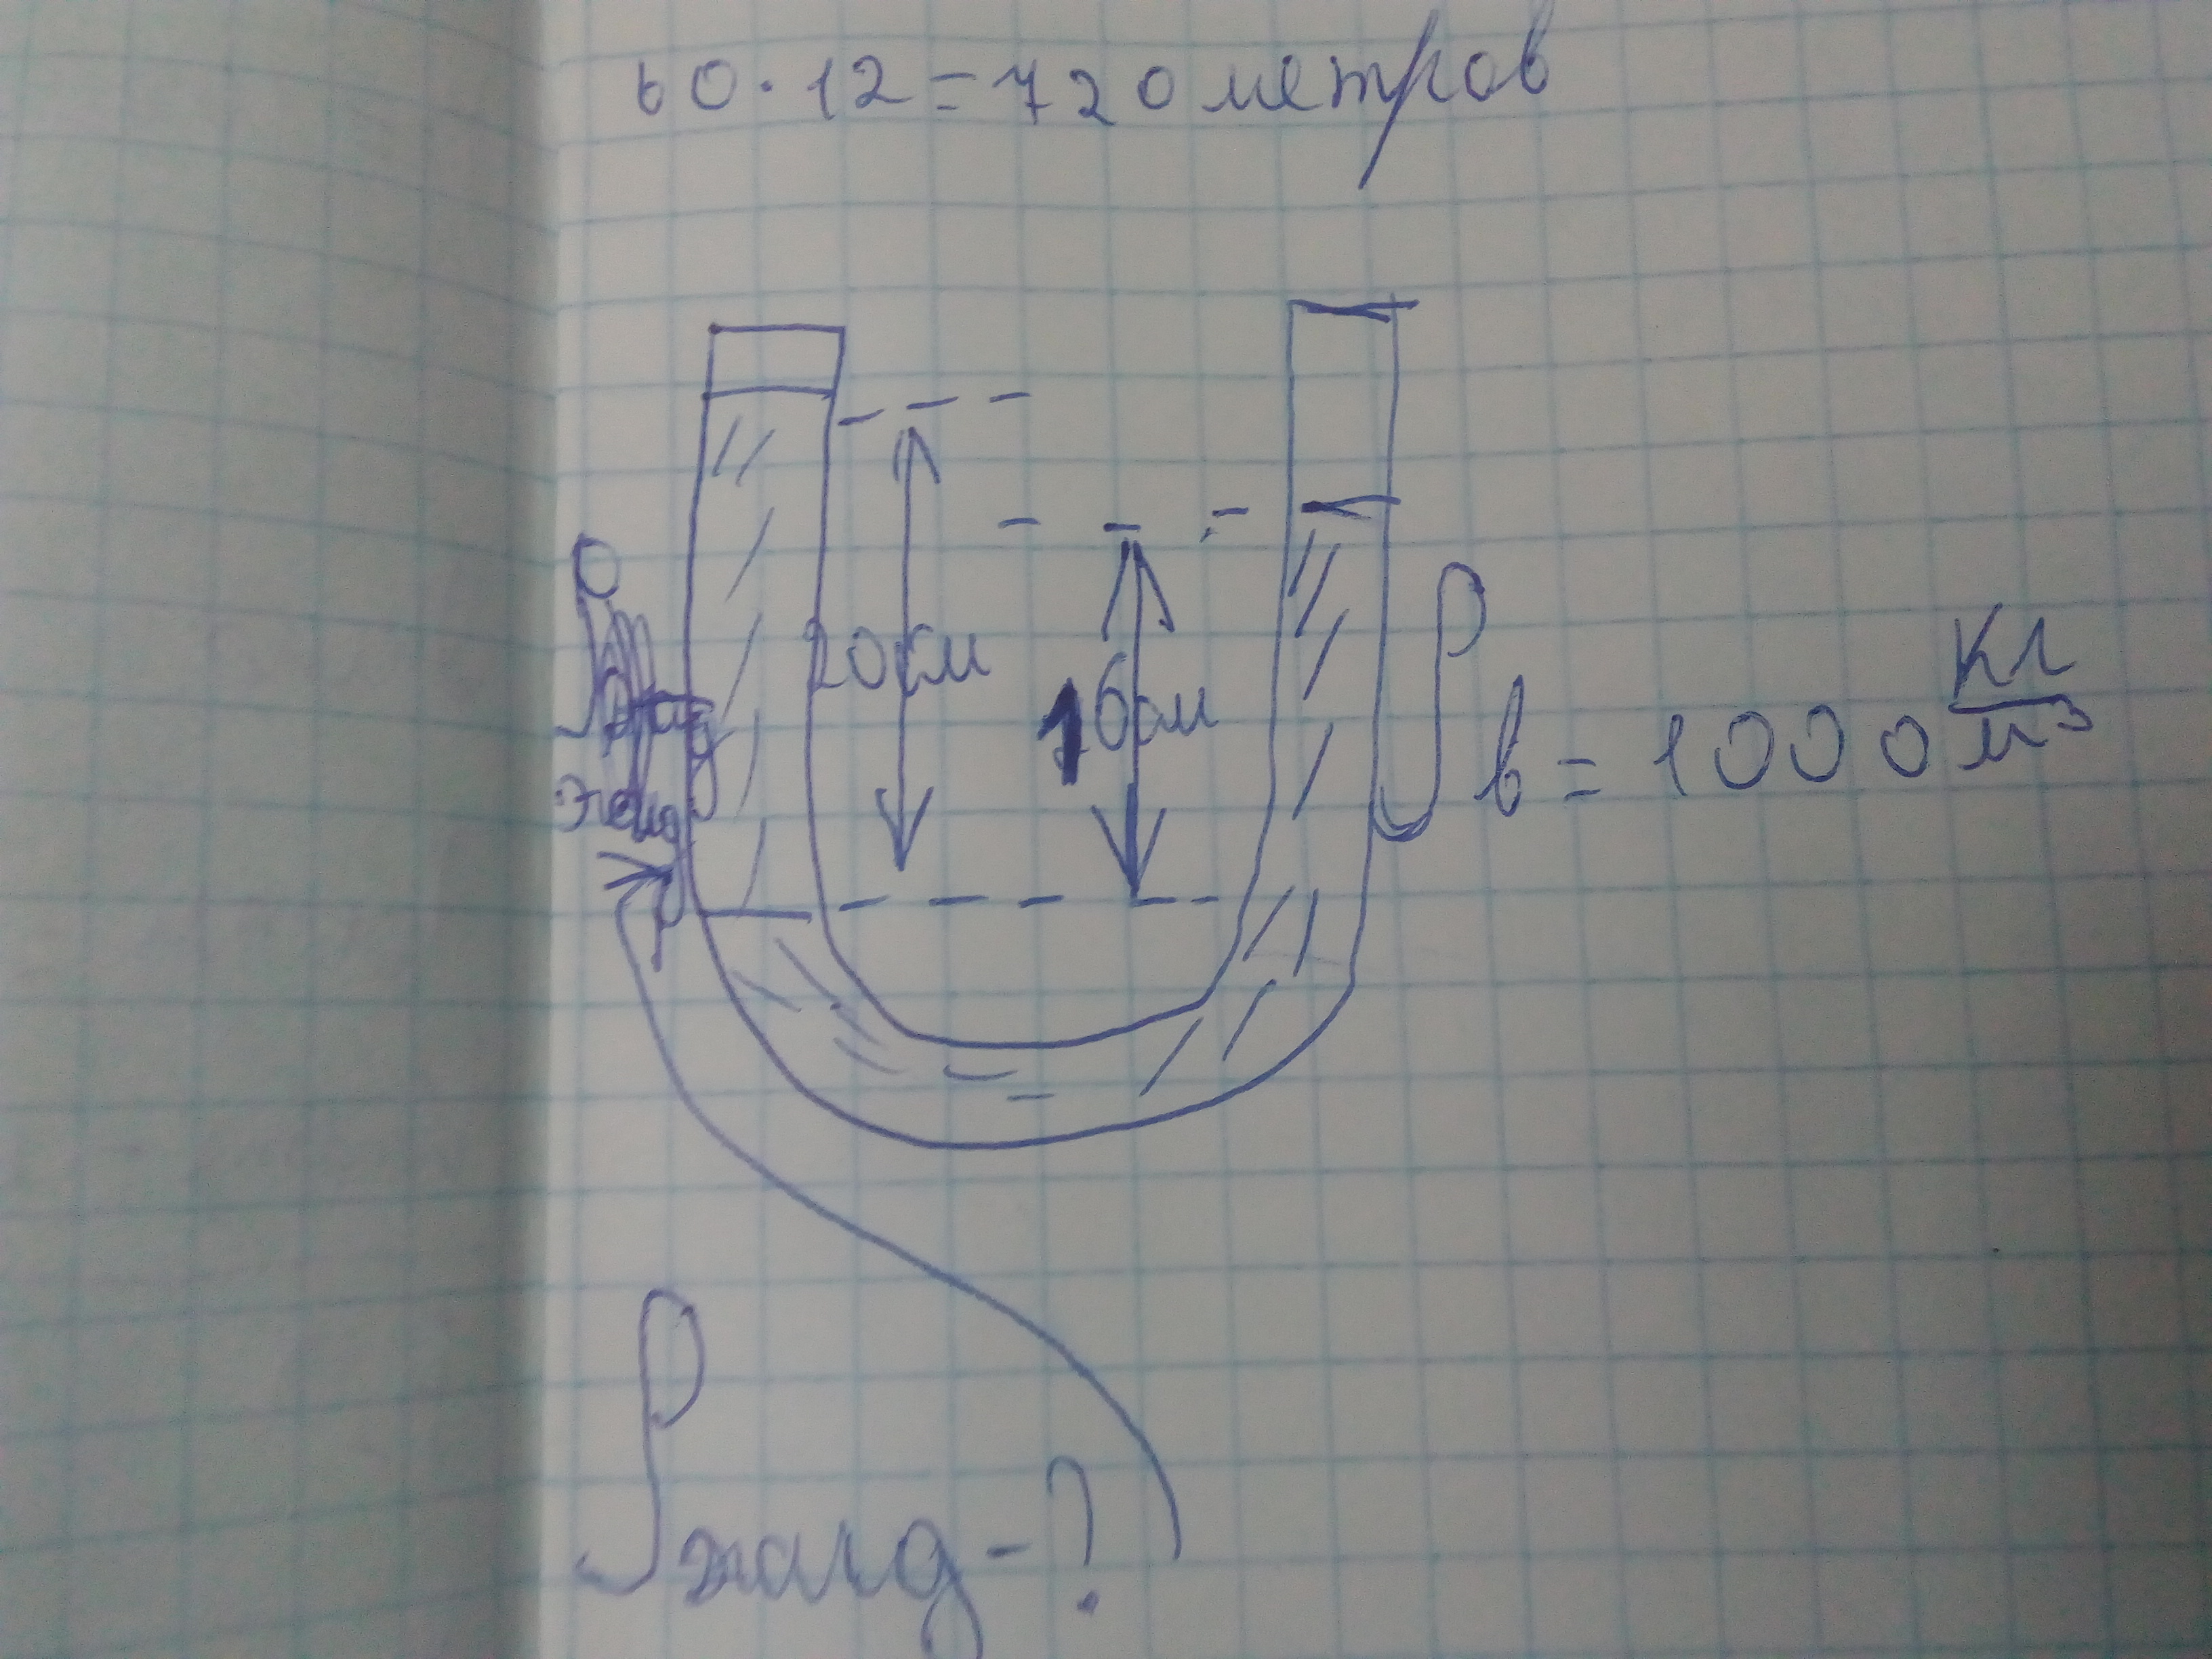 60·12=720 метров
20см
16см
ρв=1000 кг/м³
ρжид-?